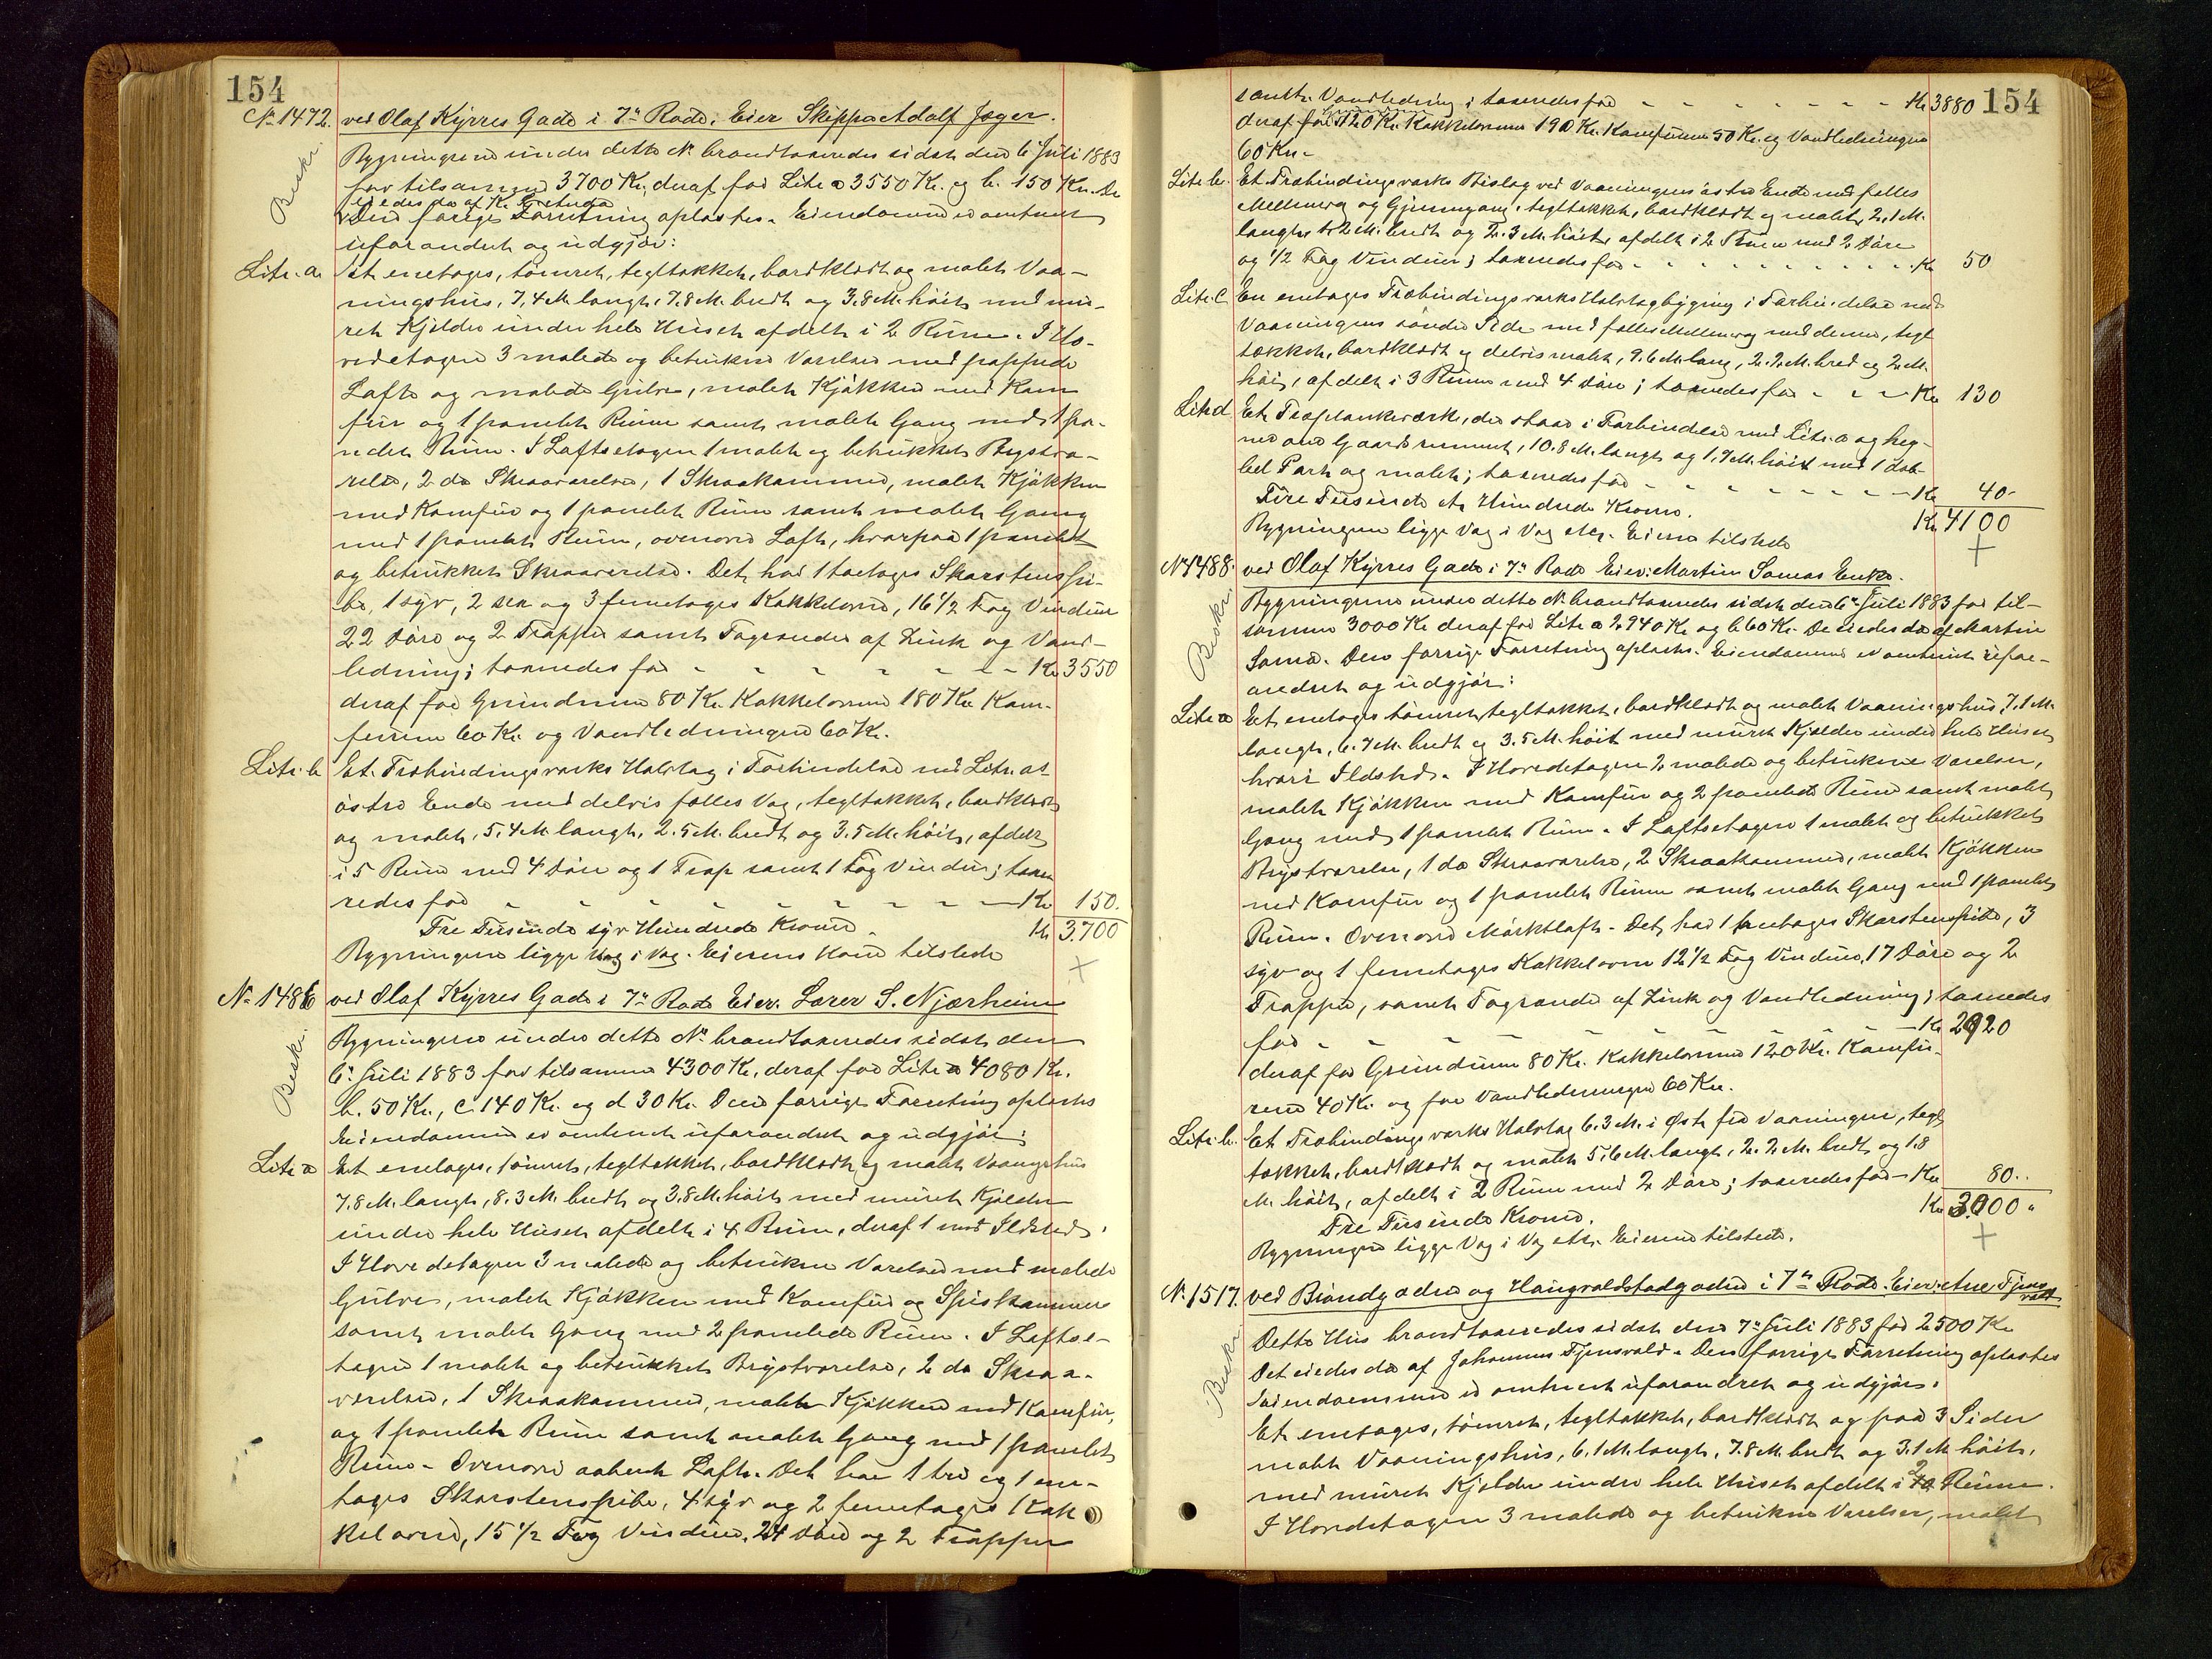 154
No 1472. ved Olaf Kyrres Gade i 7de Rode. Eier Skipper Adolf Jæger.
Beskr.
Bygningerne under dette No brandtaxeredes sidst den 6 Juli 1883
for tilsammen 3700 Kr, deraf for Litr a 3550 Kr. og b. 150 Kr. De
eiedes da af K.
Den forrige Forretning oplæstes. Eiendommen er omtrent
uforandret og udgjør:
Litr. a Et enetages, tømret, tegltækket, bordklædt og malet Vaa-
ningshus, 7,4 M. langt, 7,8 M. bredt og 3,8 M. høit med mu-
ret Kjelder under hele Huset afdelt i 2 Rum. I Ho-
vedetagen 3 malede og betrukne Værelser med pappede
Lofte og malede Gulve, malet Kjøkken med Kom
fur og 1 panelet Rum samt malet Gang med 1 pa-
nelet Rum. I Loftsetagen 1 malet og betrukket Brystvæ-
relse, 2 do Skraaværelser, 1 Skraakammer, malet Kjøkken
med Komfur og 1 panelet Rum samt malet Gang
med 1 panelet Rum, ovenover Loft, hvorpaa 1 panelet
og betrukket Skraaværelse. Det har 1 toetages Skorstenspi-
be, 1 syv, 2 sex og 3 femetages Kakkelovne, 16 1/2 Fag Vinduer
22 Døre og 2 Trapper samt Tagrender af Zink og Vand-
ledning; taxeredes for - - - - - - - Kr 3550
deraf for Grundmur 80 Kr. Kakkelovnene 180 Kr Kom-
furene 60 Kr. og Vandledningen 60 Kr.
Litr. b Et Træbindingsværks Halvtag i Forbindelse med Litr. as
østre Ende med delvis fælles Væg, tegltækket, bordklædt
og malet, 5,4 M. langt, 2.5 M. bredt og 3.5 M. høit, afdelt
i 5 Rum med 4 Døre og 1 Trap samt 1 Fag Vinduer; taxe
redes for - - - - - - - - - Kr 150.
Tre Tusinde syv Hundrede Kroner. Kr 3.700
Bygningerne ligge Væg i Væg. Eierens Kone tilstede
No 1486 ved Olaf Kyrres Gade i 7de Rode Eier: Lærer S. Njærheim
Beskr.
Bygningerne under dette No brandtaxeredes sidst den
6te Juli 1883 for tilsammen 4300 Kr, deraf for Litr a 4080 Kr.
b. 50 Kr., c. 140 Kr. og d 30 Kr. Den forrige Forretning oplæstes
Eiendommen er omtrent uforandret og udgjør:
Litr a Et enetages, tømret, tegltækket, bordklædt og malet Vaangshus
7.8 M. langt, 8.3 M. bredt og 3.8 M. høit med muret Kjelder
under hele Huset afdelt i 4 Rum, deraf 1 med Ildsted.
I Hovedetagen 3 malede og betrukne Værelser med malede
Gulve, malet Kjøkken med Komfur og Spiskammer
samt malet Gang med 2 panelede Rum. I Loftse-
tagen 1 malet og betrukket Brystværelse, 2 do Skraa-
værelser, 1 Skraakammer, malet Kjøkken med Komfur,
og 1 panelet Rum samt malet Gang med 1 panelet
Rum. Ovenover aabent Loft. Det har 1 tre og 1 ene-
tages Skorstenspibe, 4 syv og 2 femetages Kak
kelovne, 15 1/2 Fag Vinduer, 24 Døre og 2 Trapper
154
samt Vandledning; taxeredes for - - - - - - - Kr 3880
deraf for Grundmur 120 Kr. Kakkelovnene 190 Kr. Komfurene 50 Kr. og Vandledningen
60 Kr.
Litr b. Et Træbindingsværks Bislag ved Vaaningens østre Ende med fælles
Mellemvæg og Gjennemgang, tegltækket, bordklædt og malet, 2,1 M.
langt, 1.2 M. bredt og 2.3 M. høit, afdelt i 2 Rum med 2 Døre
og 1/2 Fag Vinduer; taxeredes for - - - - - - - Kr 50
Litr. c En enetages Træbindingsværks Halvtagbygning i Forbindelse med
Vaaningens søndre Side med fælles Mellemvæg med denne, tegl
tækket, bordklædt og delvis malet, 9.6 M. lang, 2.2 M. bred og 2 M.
høi, afdelt i 3 Rum med 4 Døre; taxeredes for - - - Kr 130
Litr. d Et Træplankeværk, der staar i Forbindelse med Litr. a og heg-
ner om Gaardsrummet, 10.8 M. langt og 1.7 M. høit med 1 dob-
bel Port og malet; taxeredes for - - - - - - - Kr 40.
Fire Tusinde et Hundrede Kroner. Kr 4100
Bygningerne ligge Væg i Væg etc. Eieren tilstede
No 1488. ved Olaf Kyrres Gade i 7de Rode Eier: Martin Sømes Enke.
Beskr.
Bygningerne under dette No brandtaxeredes sidst den 6te Juli 1883 for til-
sammen 3000 Kr deraf for Litr a 2940 Kr og b 60 Kr. De eiedes da af Martin
Sømes. Den forrige Forretning oplæstes. Eiendommen er omtrent ufor-
andret og udgjør:
Litr a Et enetages tømret, tegltækket, bordklædt og malet Vaaningshus, 7.1 M.
langt, 6.7 M. bredt og 3.5 M. høit med muret Kjelder under hele Huset
hvori Ildsted. I Hovedetagen 2 malede og betrukne Værelser,
malet Kjøkken med Komfur og 2 panelede Rum samt malet
Gang med 1 panelet Rum. I Loftsetagen 1 malet og betrukket
Brystværelse, 1 do Skraaværelse, 2 Skraakammere, malet Kjøkken
med Komfur og 1 panelet Rum samt malet Gang med 1 panelet
Rum. Ovenover Mørktloft. Det har 1 enetages Skorstenspibe, 3
syv og 1 femetages Kakkelovne 12 1/2 Fag Vinduer, 17 Døre og 2
Trapper, samt Tagrender af Zink og Vandledning; taxeredes
for - - - - - - - - - Kr 2920
deraf for Grundmur 80 Kr. Kakkelovnene 120 Kr. Komfu-
rene 40 Kr. og for Vandledningen 60 Kr.
Litr. b. Et Træbindingsværks Halvtag 6.3 M. i Øst for Vaaningen, tegl
tækket, bordklædt og malet 5,6 M. langt, 2.2 M. bredt og 1.8
M. høit, afdelt i 2 Rum med 2 Døre; taxeredes for - Kr 80..
Tre Tusinde Kroner. Kr 3000 "
Bygningerne ligge Væg i Væg etc. Eieren tilstede.
No 1517. ved Brøndgaden og Haugvaldstadgaden i 7de Rode. Eier: Ane Tjens
vold
Beskr.
Dette Hus brandtaxeredes sidst den 7de Juli 1883 for 2500 Kr
Det eiedes da af Johannes Tjensvold. Den forrige Forretning oplæstes
Eiendommen er omtrent uforandret og udgjør.
Et enetages, tømret, tegltækket, bordklædt og paa 3 Sider
malet Vaaningshus, 6.1 M. langt, 7.8 M. bredt og 3.1 M høit,
med muret Kjelder under hele Huset afdelt i 2 Rum.
I Hovedetagen 3 malede og betrukne Værelser, malet